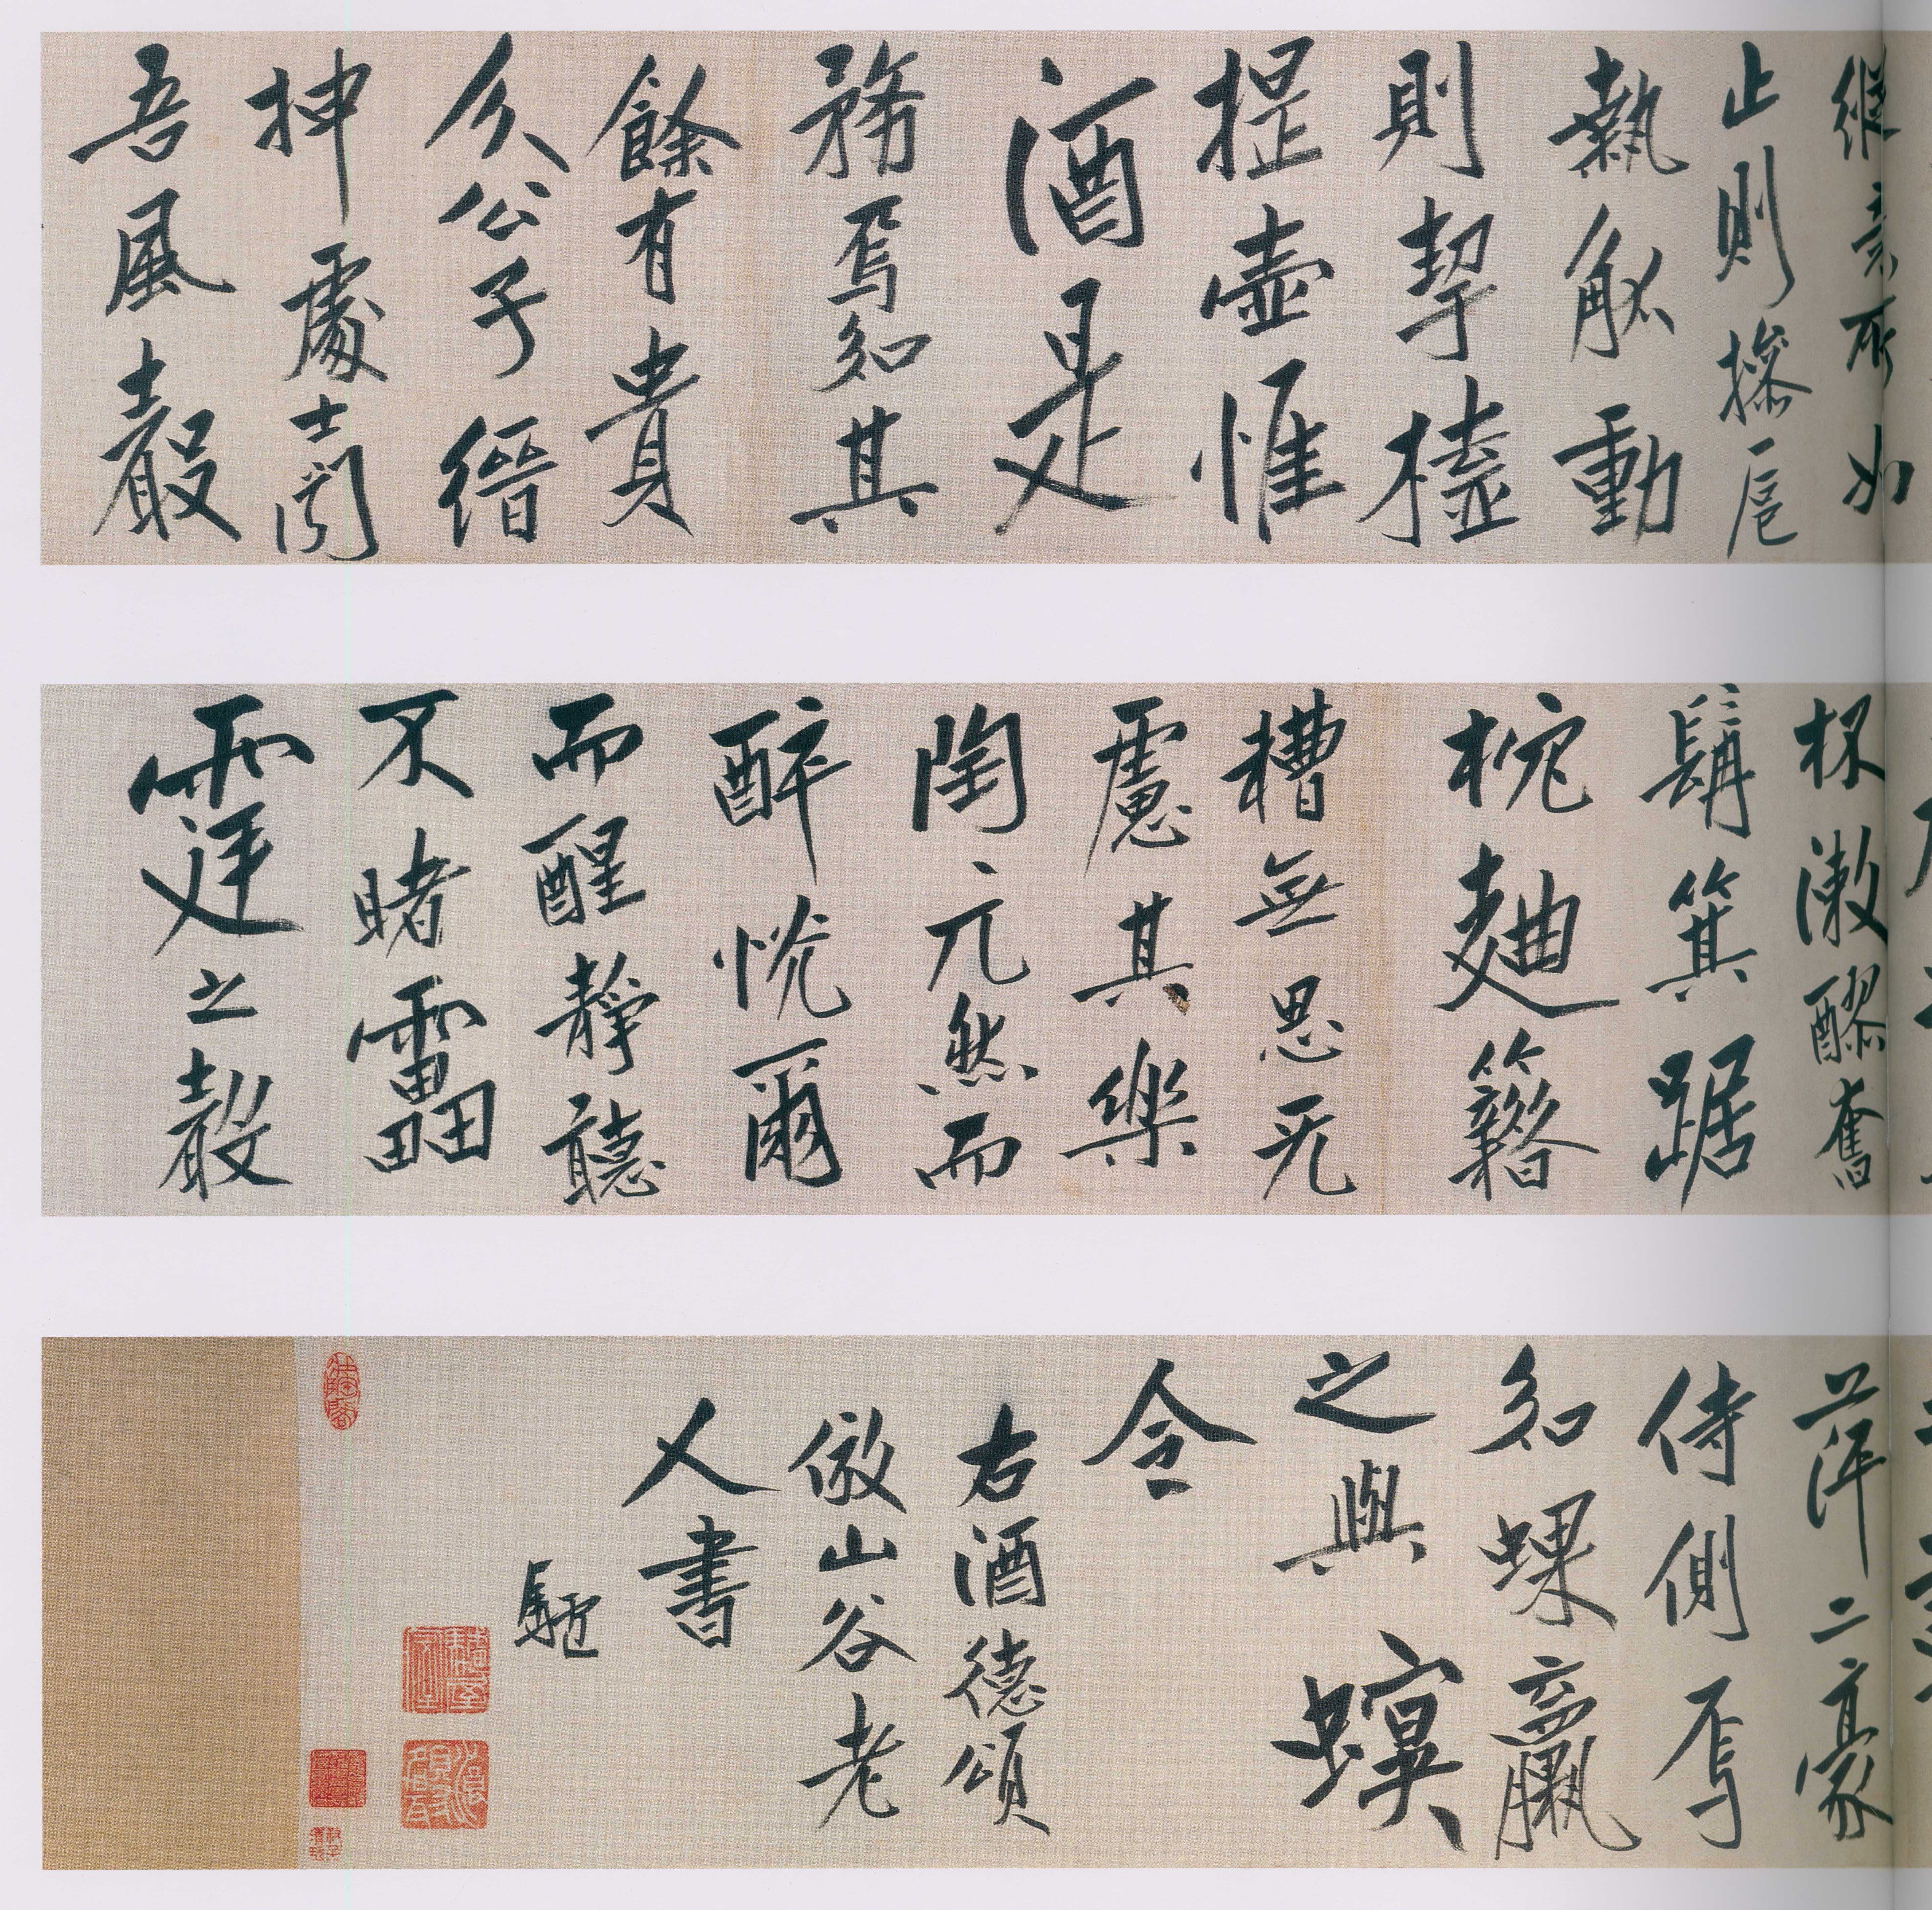 縱意所如
止則操卮
執觚動
則挈榼
提壺惟
酒是
務焉知其
餘有貴
介公子縉
紳處士聞
吾風聲
杯漱醪奮
髯箕踞
枕麯籍
糟無思无
慮其樂
陶亢然而
醉恍爾
而醒靜聽
不睹靁
霆之聲
萍二豪
侍側焉
知蜾蠃
之與螟
令
右酒德頌
倣山谷老
人書